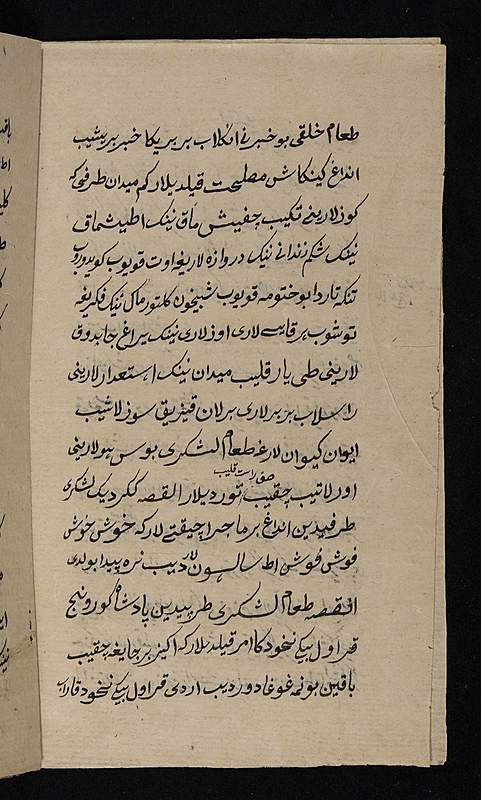 طعام خلقی بو خبرنی انکلاب بر بریکا خبر بریشیب
انداغ کینکاش مصلحت قیلدیلار کم میدان طرفی که
کوزلارینی تکیب چفیش ماق نینک اطیشماق
نینک شکم زندانی نینک دروازه لاریغه اوت قویوب کویدوروب
تنکه تاردا بوختومه قویوب شبیخون کلتورماک نینک فکریغه
توشوب هر قایسی لاری اوزلاری نینک یراغ جابدوق
لارینی طی یار قلیب میدان نینک استعدادلارینی
راسلاب بر بر لاری برلان قیزیق سوزلاشیب
ایوان کیوان لارغه طعام لشکری بوسه هولارینی
اورلاتیب چقیب صف راست قلیب توردیلار القصه ککردیک لشکری
طرفیدین انداغ بر ماجرا چیقتی لار که خوش خوش
قوش قوش اط سالهون لار دیب نره پیدا بولدی
القصه طعام لشکری طرفیدین پادشاه کورونج
قراول بیکی نخود کا امر قیلدیلار که اکیز بر جایغه چقیب
باقین بو نمه غوغا دور دیب اردی قراول بیکی نخود قاراب